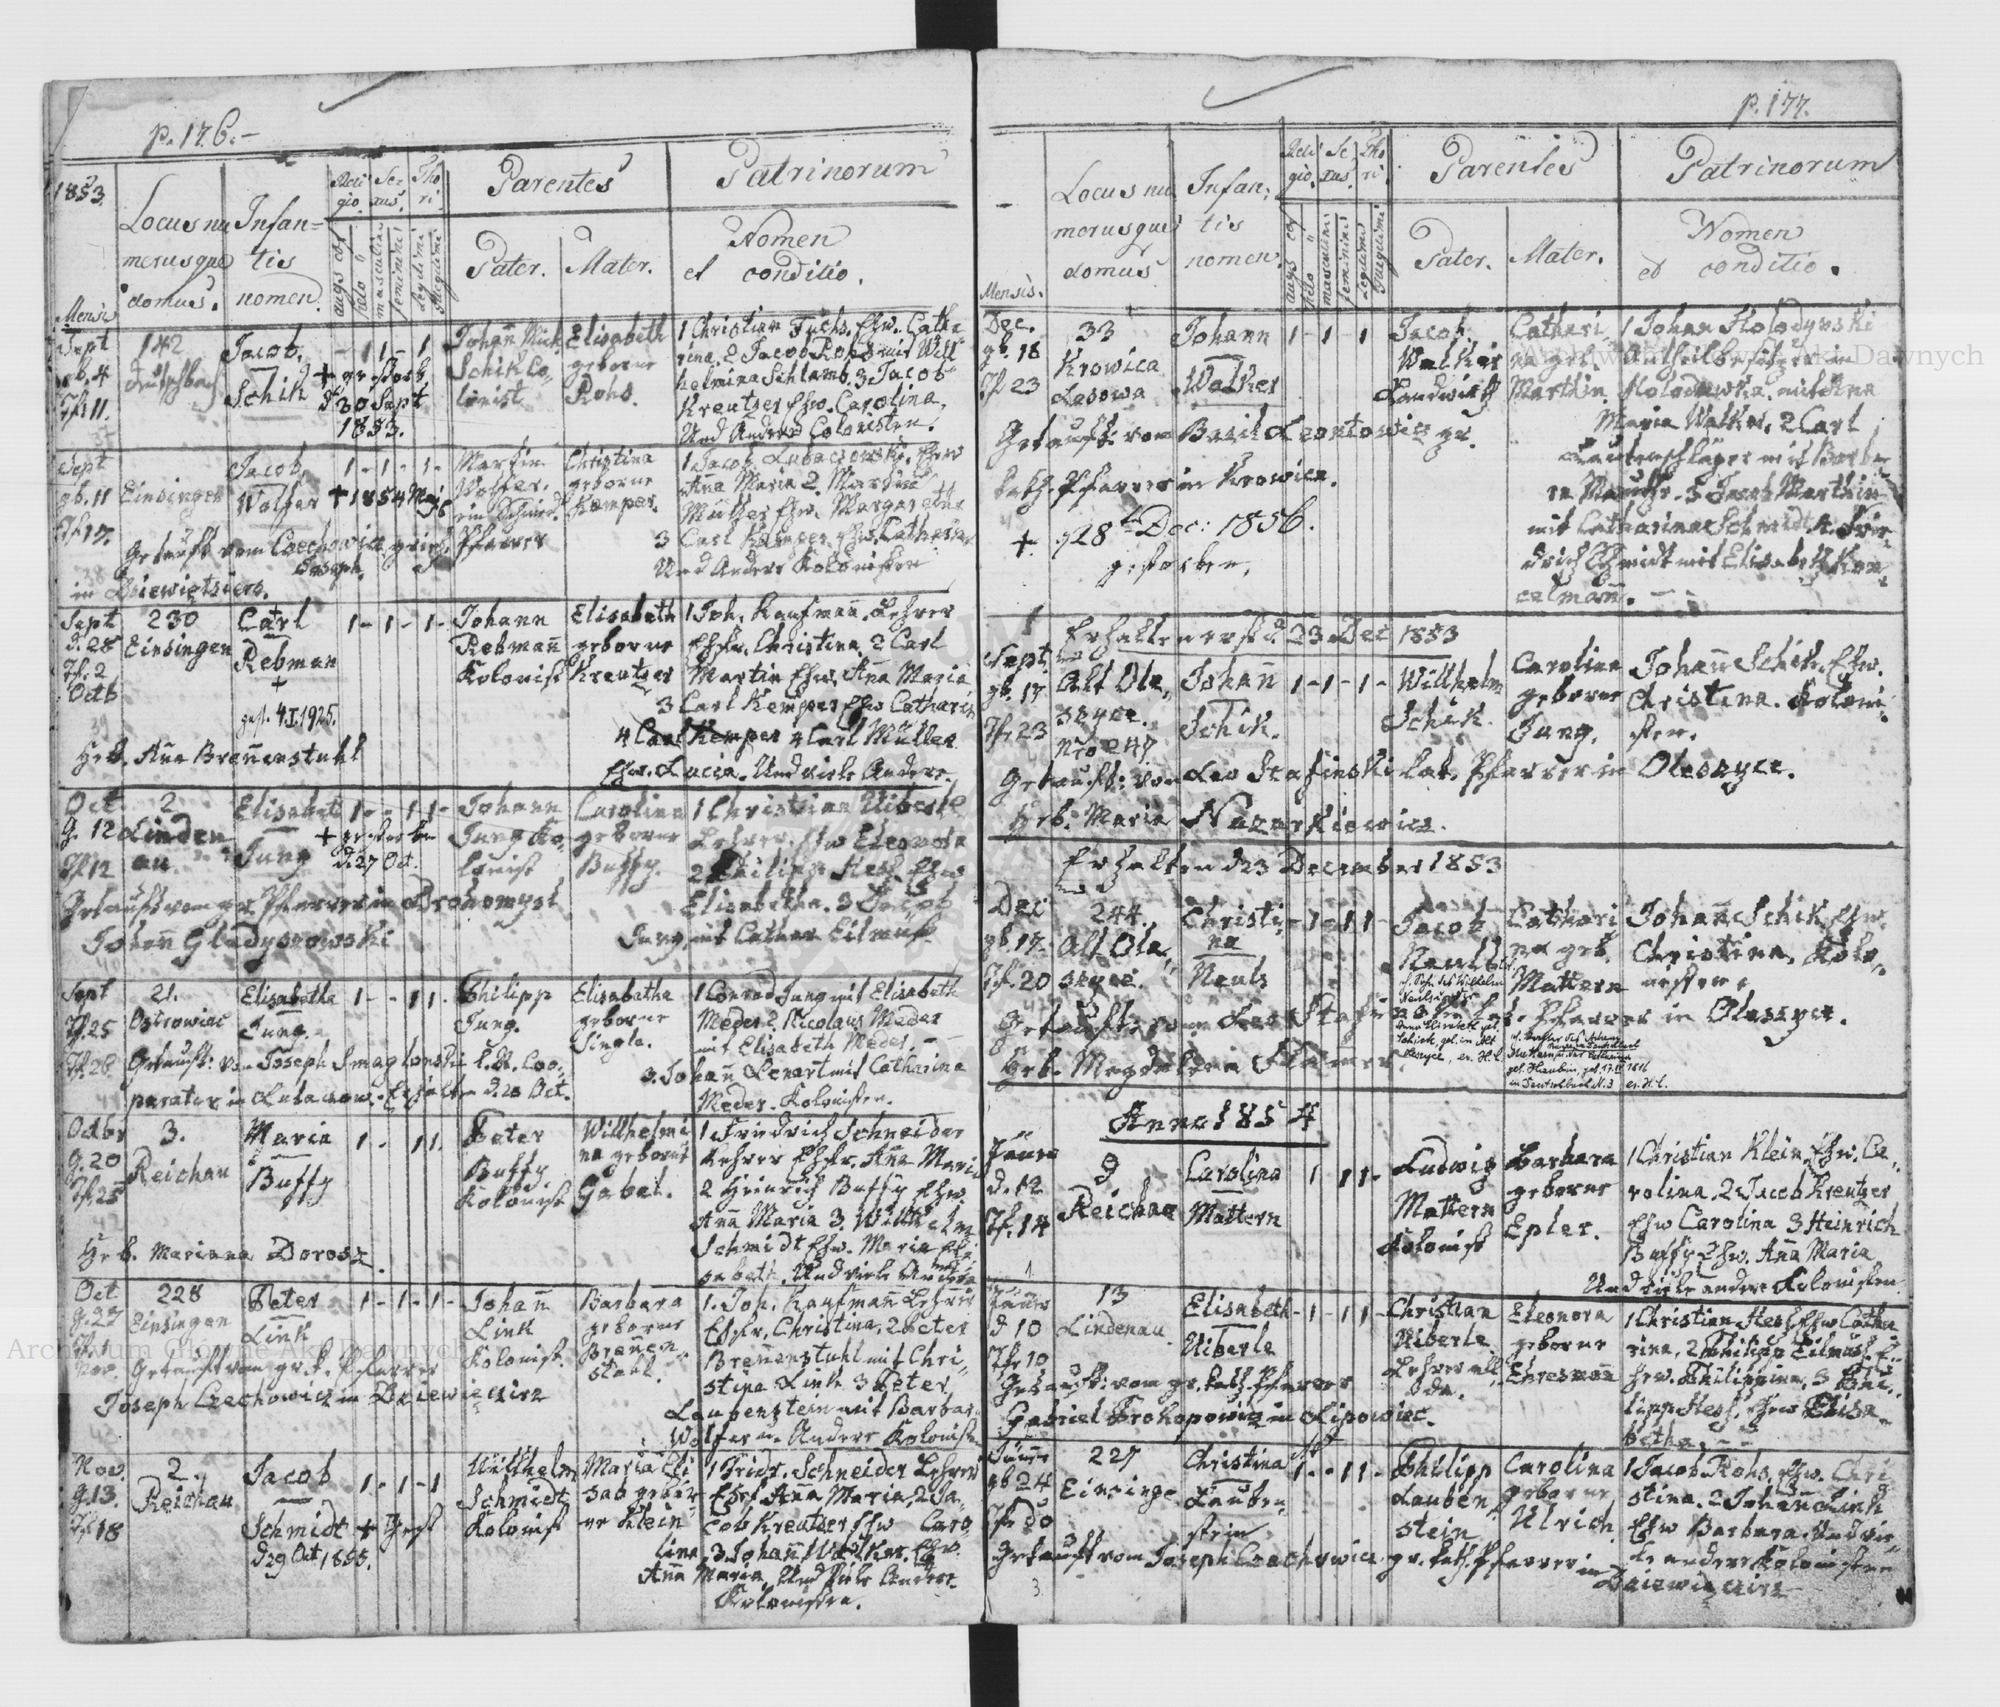 p. 176.-
1853.
Mensis
Locus nu
merusque
domus.
Infan=
tis
nomen.
Reli
gio.
Sex
us.
Tho
ri.
Parentes
Pater.
Mater.
Patrinorum
Nomen
et conditio.
Sept
gb. 4
Tf. 11.
142
Jacob
Schik
+ gestorb
d 30 Sept
1853.
Johañ Mich
Schik Co-
lonist
Elisabeth
geborne
Rohs.
1 Christian Fuchs, Ehw. Cathe
rina, 2 Jacob Rohs mit Will
helmina Schlamb. 3 Jacob
Kreutzer Ehw. Carolina,
Und Andere Colonisten.
Sept
gb. 11
Tf. 17.
Einsingen
Jacob
Wolfer
+ 1854 Maj 6
Martin
Wolfer.
Christina
geborne
Kemper.
Ana Maria 2. Martin
Müller Ehw. Margaretha
3 Carl Kemper Ehw. Catharina
Und Andere Kolonisten
Getauft vom Czechowicz griech. Pfarrer
Joseph.
in Dziewientsierz.
Sept
d. 28
Tf. 2
Octb
230
Einsingen
Carl
Rebman
+
gest. 4.I.1925.
Johann
Rebmañ
Kolonist
Elisabeth
geborne
Kreutzer
1 Joh. Kaufmañ. Lehrer
Ehfr. Christina. 2 Carl
Martin Ehw. Aña Maria
3 Carl Kemper Ehw Catharin
4 Carl Kemper 4 Carl Müller
Ehw. Lucia. Und viele Andere.
Heb. Aña Breñenstuhl
Oct
g. 12
Tf. 12
2
Linden
au.
Elisabeth
Jung
+ gestorben
d. 27 Oct.
Johann
Jung Ko-
lonist
Carolina
geborne
Buffy.
1 Christian Uiberle
Lehrer, Ehw Eleonora
2 Philipp Hess. Ehw
Elisabetha. 3 Jacob
Jung mit Cathar Eilmuss.
Getauft vom gr. Pfarrer in Drohomysl
Johañ Gladyszowski
Sept
g. 25
Tf. 28
21.
Ostrowiec
Elisabetha
Jung.
Philipp
Jung.
Elisabetha
geborne
Single.
1 Conrad Jung mit Elisabeth
Meder 2. Nicolaus Meder
mit Elisabeth Meder.
3. Johañ Lenart mit Catharina
Meder. Kolonisten.
Getauft: von Joseph Smaglowski L. R. Coo-
perator in Lubaczow. Erhalten d. 20 Oct.
Octbr
g. 20
Tf. 25
3.
Reichau
Maria
Buffy
Peter
Buffy
Kolonist
Willhelmi
na geborne
Gabel.
1 Friedrich Schneider
Lehrer Ehfr. Aña Maria
2 Heinrich Buffy Ehw.
Aña Maria 3. Willhelm
Schmidt Ehw. Maria Eli
sabeth. Und viele Andere
Heb. Mariana Dorosz.
Oct
g. 27
Tf. 1
Nov.
228
Einsingen
Peter
Link
Johañ
Link
Kolonist.
Barbara
geborne
Breñen-
stuhl.
1. Joh. Kaufmañ Lehrer
Ehfr. Christina, 2 Peter
Breñenstuhl mit Chri-
stina Link 3 Peter
Laubenstein mit Barbar
Wolfer u. Andere Kolonisten
Getauft von gr. k. Pfarrer
Joseph Czechowicz in Dziewięcierz
Nov.
g. 13.
Tf. 18
2.
Reichau
Jacob
Schmidt + gest
d 29 Oct 1855.
Willhelm
Schmidt
Kolonist
Maria Eli
sab gebor
ne Klein
1 Fridr. Schneider Lehrer
Ehfr. Aña Maria, 2 Ja-
cob Kreutzer Ehw Caro
lina, 3 Johañ Walker. Ehw.
Aña Maria, Und Viele Andere
Kolonisten.
p. 177.
Mensis.
Locus nu
merusque
domus
Infan:
tis
nomen.
Reli
gio.
Se
xus.
Tho
ri.
Parentes
Pater.
Mater.
Patrinorum
Nomen
et conditio.
Dec.
gb. 18
Tf 23
33
Krowica
Lasowa
Johann
Walker
Jacob
Walker
Landwirth
Cathari
na geb.
Martin
1 Johan Holodynski
Antheilbesitzer in
Holodowka. mit Ana
Maria Walker, 2 Carl
Lautenschläger mit Barba
ra Manuhr. 3 Jacob Martin
mit Catharinae Schmidt, 4. Frie-
drich Schmidt mit Elisabeth Kon
celmañ.
Getauft: vom Basil Leontowicz gr.
kath. Pfarrer in Krowica.
+ d 28ten Dec: 1856.
gestorben.
Erhalten erst d 23 Dec 1853
Sept.
gb. 17
Tf. 23
Alt Ole-
szyce.
Nro 247
Johañ
Schik.
Willhelm
Schik.
Carolina
geborne
Jung.
Johañ Schik. Ehw.
Christina. Koloni-
sten.
Getauft: von Leo Stafinski lat. Pfarrer in Oleszyce.
Heb. Maria Nazarkiewicz.
Erhalten d 23 December 1853
Dec
gb. 17.
Tf. 20
244.
Alt Ole-
szyce.
Christi-
na
Neuls
Jacob
Neuls
Cathari
na geb.
Mattern
Johañ Schik Ehw.
Christina, Kolo-
nisten.
Getauft: vom Leo Stafinski lat. Pfarrer in Oleszyce.
Heb. Magdalena
Anno 1854
Jäner
d. 12
Tf. 14
9
Reichau
Carolina
Mattern
Ludwig
Mattern
Kolonist
Barbara
geborne
Epler.
1 Christian Klein, Ehw. Ca-
rolina, 2 Jacob Kreutzer
Ehw Carolina 3 Heinrich
Buffy Ehw. Aña Maria
Und viele andere Kolonisten.
Jäner
d 10
Tf. 10
13
Lindenau
Elisabeth
Uiberle
Christian
Uiberle
Lehrer all
da.
Eleonora
geborne
Ehresmañ
1 Christian Hess Ehw Catha
rina, 2 Philipp Eilmuss. E-
hew. Philippina, 3 Phi-
lipp Hess. Ehw Elisa
betha.
Getauft: vom gr. kath. Pfarrer
Gabriel Prokopowicz in Lipowiec.
Jäner
gb 24
227
Einsinge
Christina
Lauben-
stein
Philipp
Lauben-
stein
Carolina
geborne
Ulrich
1 Jacob Rohs, Ehw. Chri
stina. 2 Johañ Link
Ehw Barbara. Und vie-
le andere Kolonisten
Getauft vom Joseph Czechowicz gr. kath. Pfarrer in
Dziewięcierz
Archiwum Główne Akt Dawnych